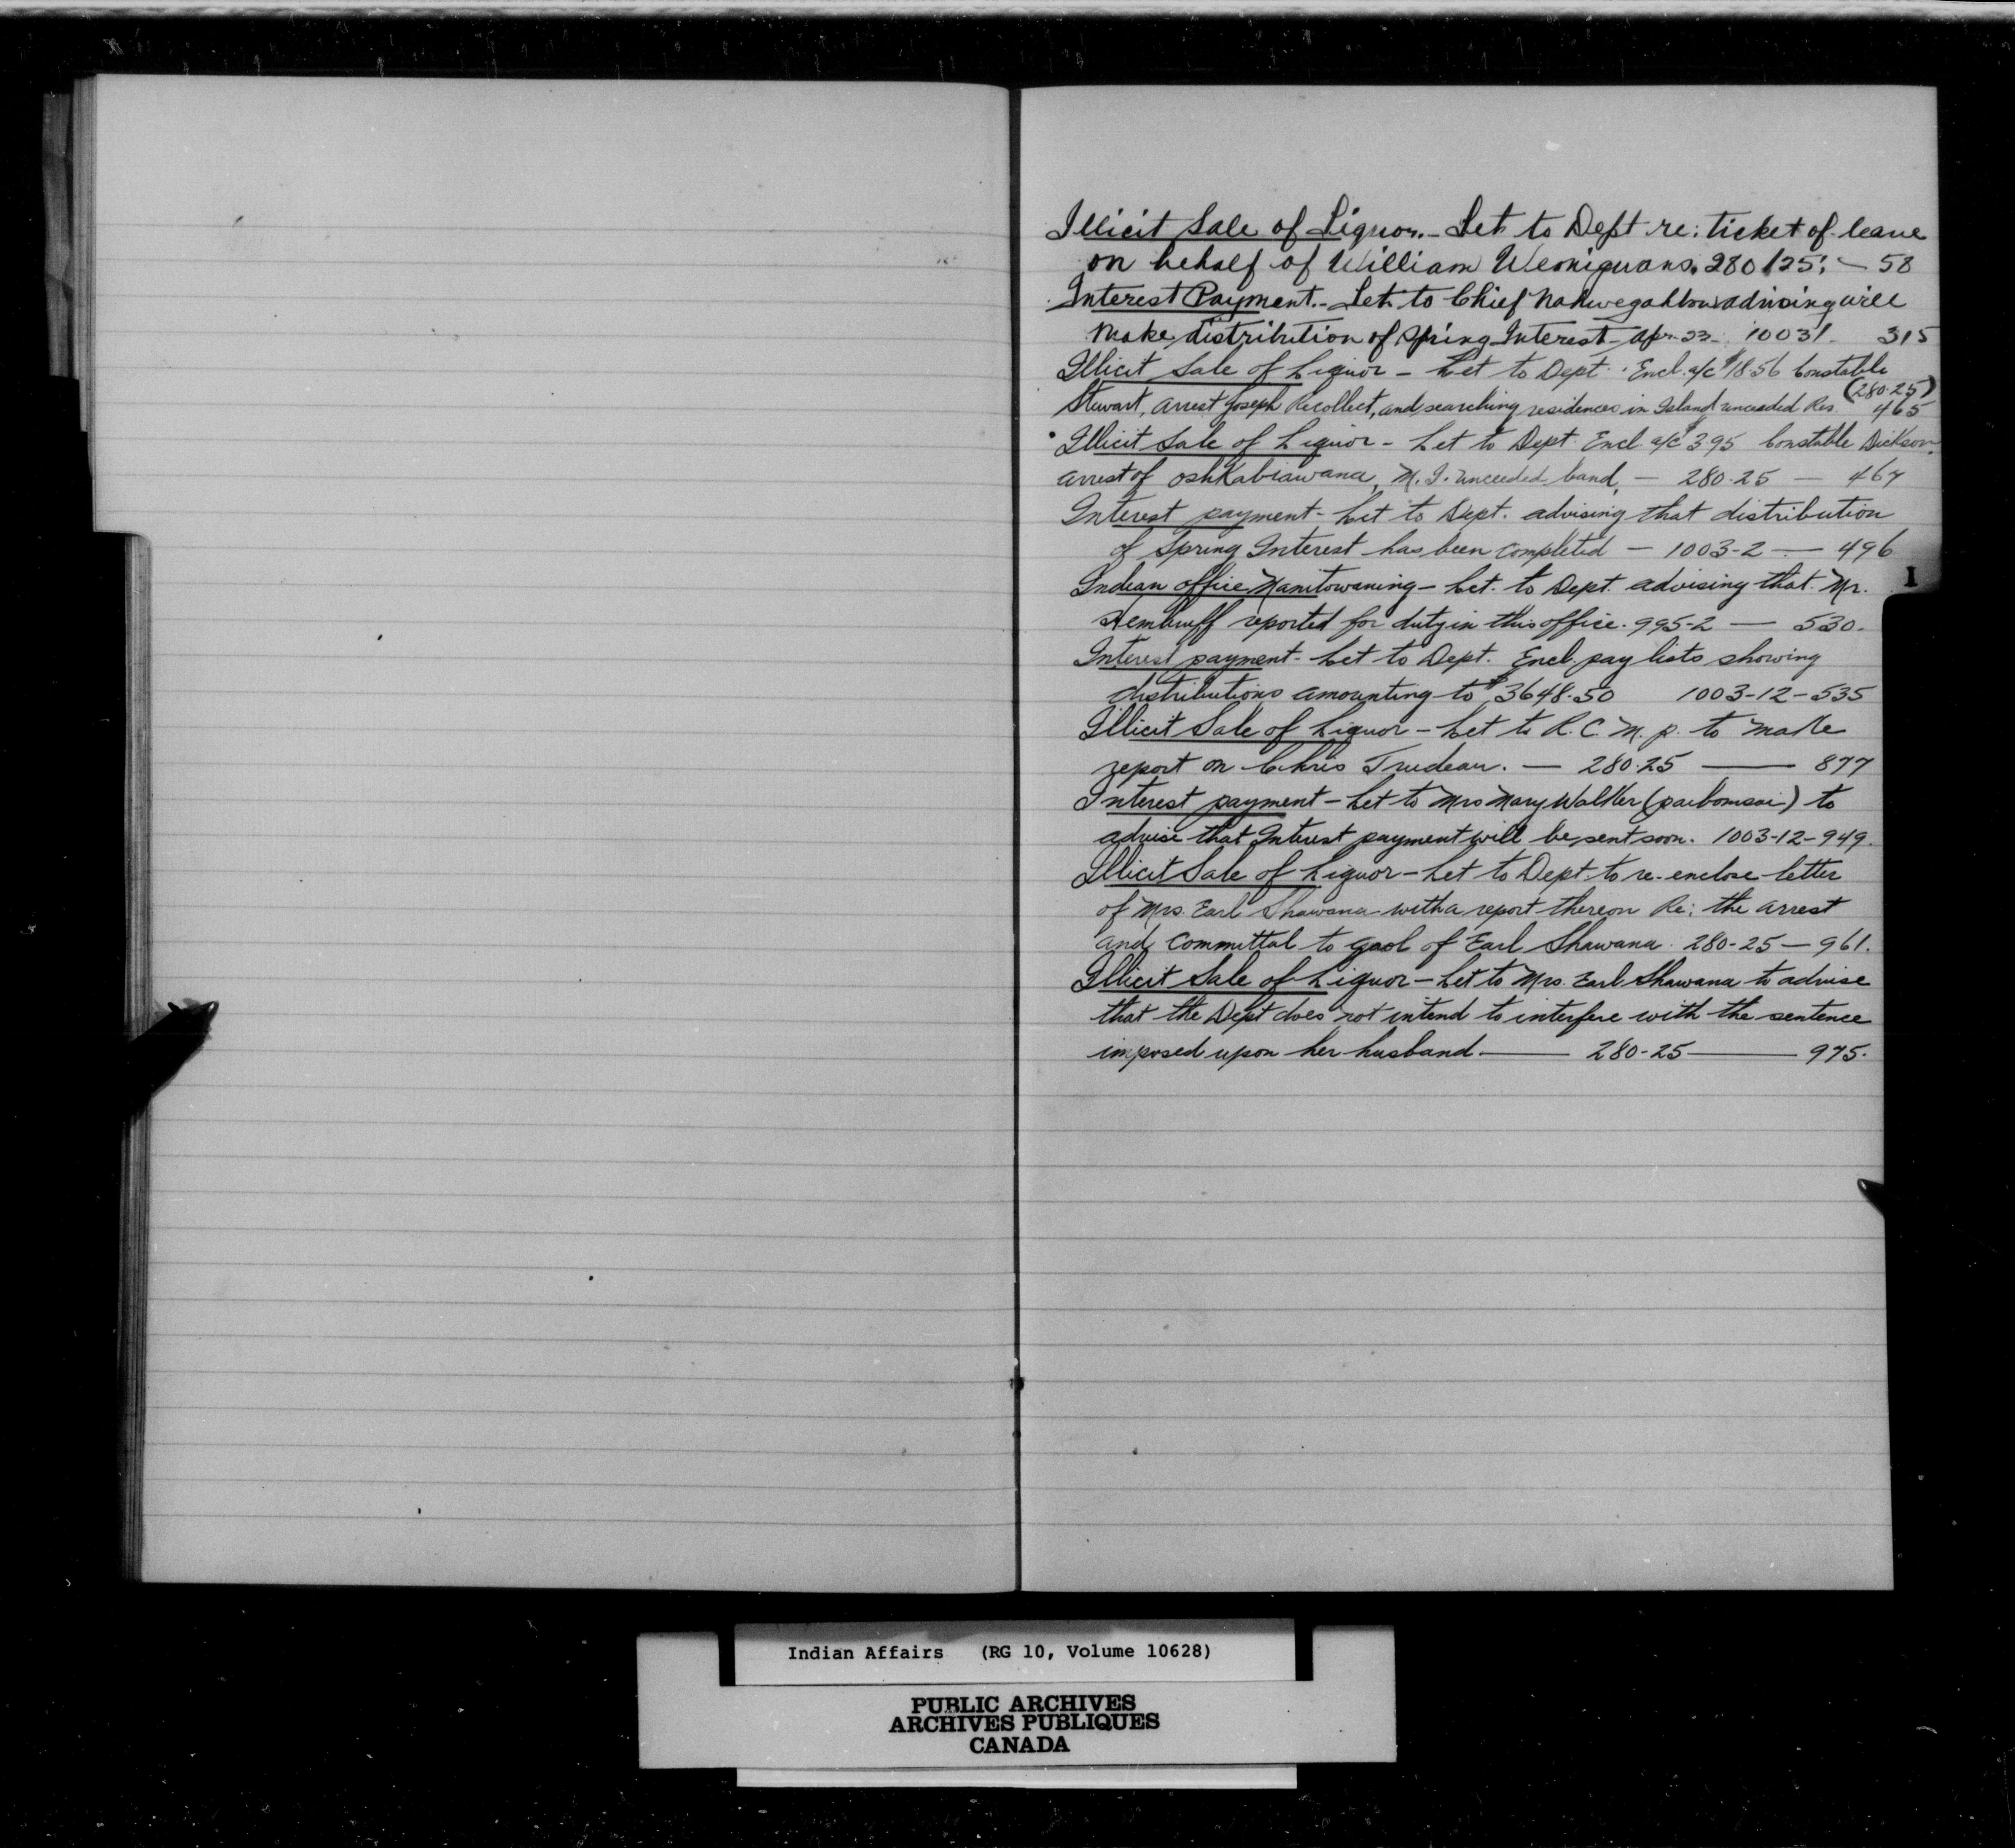 Illicit Sale of Liquor. - Let to Dept re: ticket of leave
on behalf of William Weoniguans. 280/25: - 58
Interest Payment. - Let to Chief advising will
make distribution of Spring Interest - Apr. 23 - 1003 1 - 315
Illicit Sale of Liquor - Let to Dept. Encl. a/c $18.56 Constable
Stewart, arrest Joseph Recollect, and searching residences in Island unceeded Res. (280.25) 465
Illicit Sale of Liquor - Let to Dept. Encl a/c $3.95 Constable Dickson
arrest of OshKabiawana, M. I. unceeded band, - 280.25 - 467
Interest payment - Let to Dept. advising that distribution
of Spring Interest has been completed - 1003-2 - 496
Indian office Manitowaning - Let. to Dept. advising that Mr.
Hembruff reported for duty in this office. 995-2 - 530.
Interest payment - Let to Dept. Encl. pay lists showing
distributions amounting to $3648.50 1003-12-535
Illicit Sale of Liquor - Let to R. C. M. p. to make
report on Chris Trudeau. - 280.25 - 877
Interest payment - Let to Mrs Mary Walker to
advise that Interest payment will be sent soon. 1003-12-949.
Illicit Sale of Liquor - Let to Dept. to re-enclose letter
of Mrs. Earl Shawana with a report thereon Re: the arrest
and committal to gaol of Earl Shawana. 280-25 - 961.
Illicit Sale of Liquor - Let to Mrs. Earl Shawana to advise
that the Dept does not intend to interfere with the sentence
imposed upon her husband - 280-25 - 975.
I
Indian Affairs (RG 10, Volume 10628)
PUBLIC ARCHIVES
ARCHIVES PUBLIQUES
CANADA